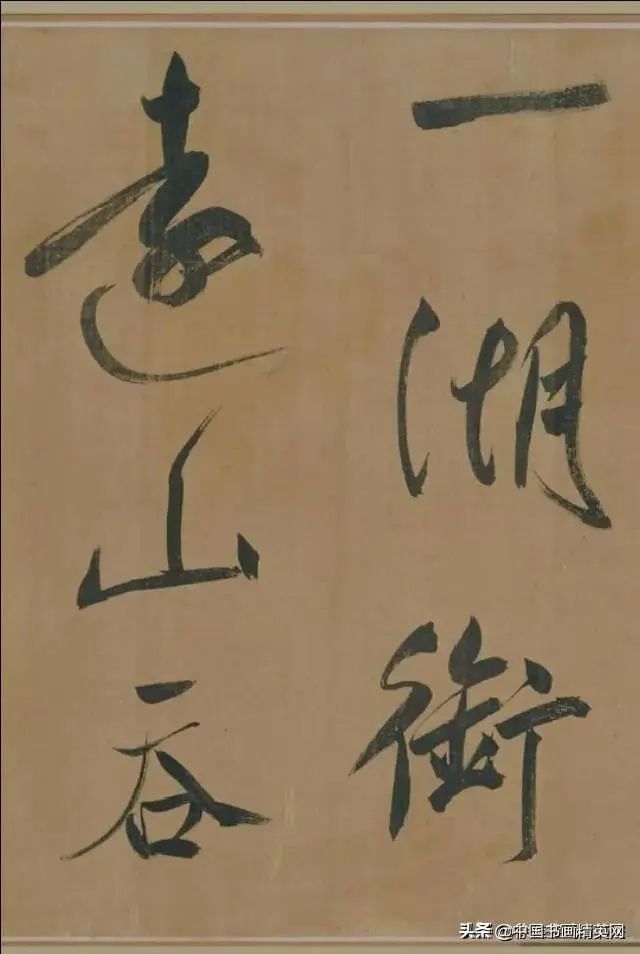 一湖銜
遠山吞
头条 @中国书画精英网